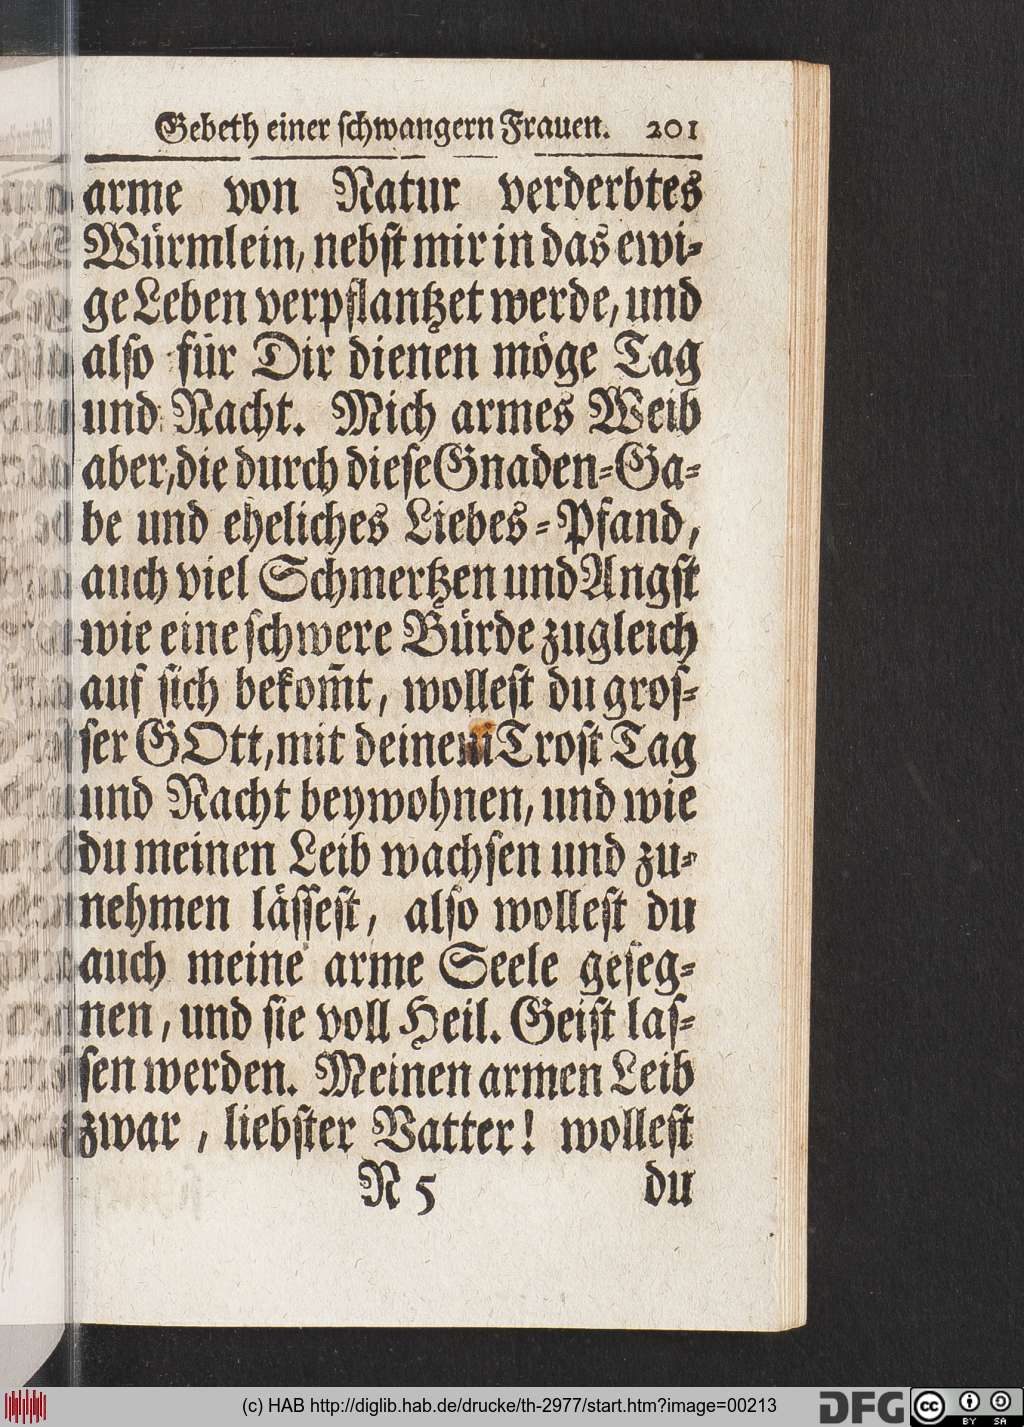 Gebeth einer schwangern Frauen. 201
arme von Natur verderbtes
Würmlein, nebst mir in das ewi-
ge Leben verpflantzet werde, und
also für Dir dienen möge Tag
und Nacht. Mich armes Weib
aber, die durch diese Gnaden-Ga-
be und eheliches Liebes-Pfand,
auch viel Schmertzen und Angst
wie eine schwere Bürde zugleich
auf sich bekom̃t, wollest du gros-
ser GOtt, mit deinem Trost Tag
und Nacht beywohnen, und wie
du meinen Leib wachsen und zu-
nehmen lässest, also wollest du
auch meine arme Seele geseg-
nen, und sie voll Heil. Geist las-
sen werden. Meinen armen Leib
zwar, liebster Vatter! wollest
N 5 du
(c) HAB http://diglib.hab.de/drucke/th-2977/start.htm?image=00213
DFG
cc BY SA